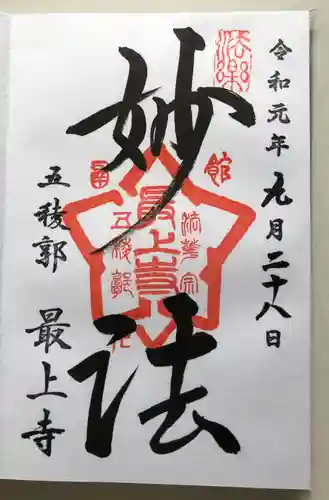 令和元年九月二十八日
妙法
五稜郭
最上寺
法楽
函館
法華宗
最上寺
五稜郭